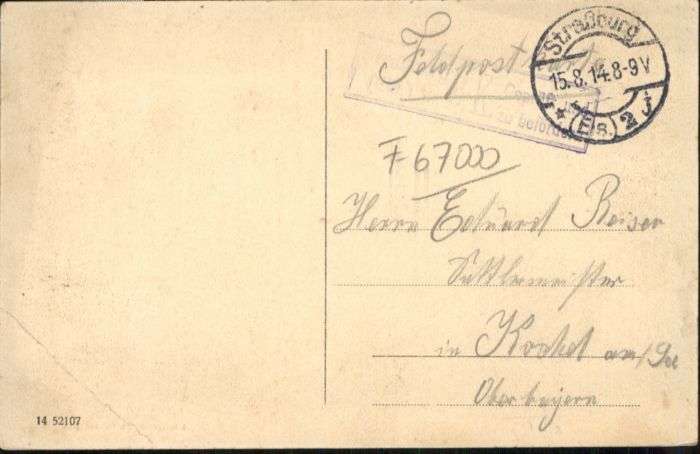 Feldpostkarte
Straßburg
15.8.14.8-9V
* (Els.) 2 j
zu beförd
F 67000
Herrn Eduard Reiser
Sattlermeister
in Kochel am/See
Oberbayern
14 52107